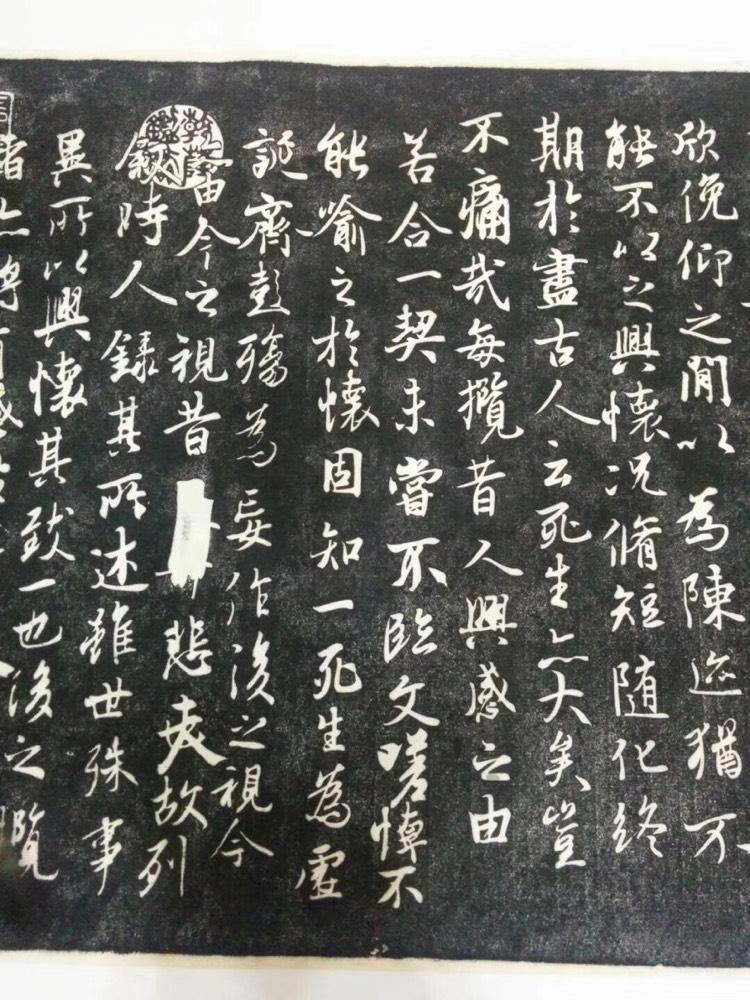 欣俛仰之閒以為陳迹猶不
能不以之興懷况脩短隨化終
期於盡古人云死生亦大矣豈
不痛哉每攬昔人興感之由
若合一契未嘗不臨文嗟悼不
能喻之於懷固知一死生為虛
誕齊彭殤為妄作後之視今
由今之視昔悲夫故列
敘時人錄其所述雖世殊事
異所以興懷其致一也後之覽
者亦將有感